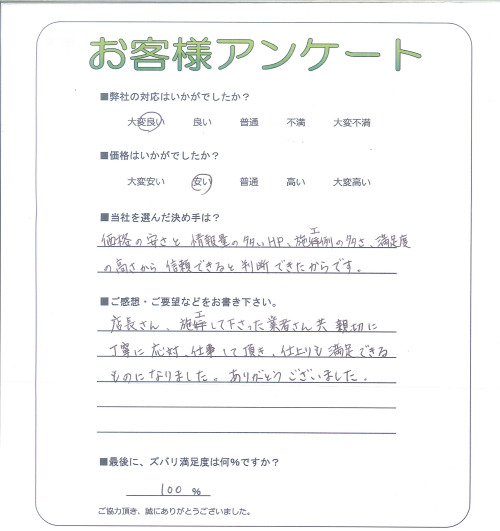 お客様アンケート
■弊社の対応はいかがでしたか？
大変良い 良い 普通 不満 大変不満
■価格はいかがでしたか？
大変安い 安い 普通 高い 大変高い
■当社を選んだ決め手は？
価格の安さと 情報量の多いHP、施工例の多さ、満足度
の高さから 信頼できると判断できたからです。
■ご感想・ご要望などをお書き下さい。
店長さん、施工して下さった業者さん共 親切に
丁寧に 応対、仕事して頂き、仕上りも 満足できる
ものになりました。ありがとうございました。
■最後に、ズバリ満足度は何％ですか？
100 %
ご協力頂き、誠にありがとうございました。